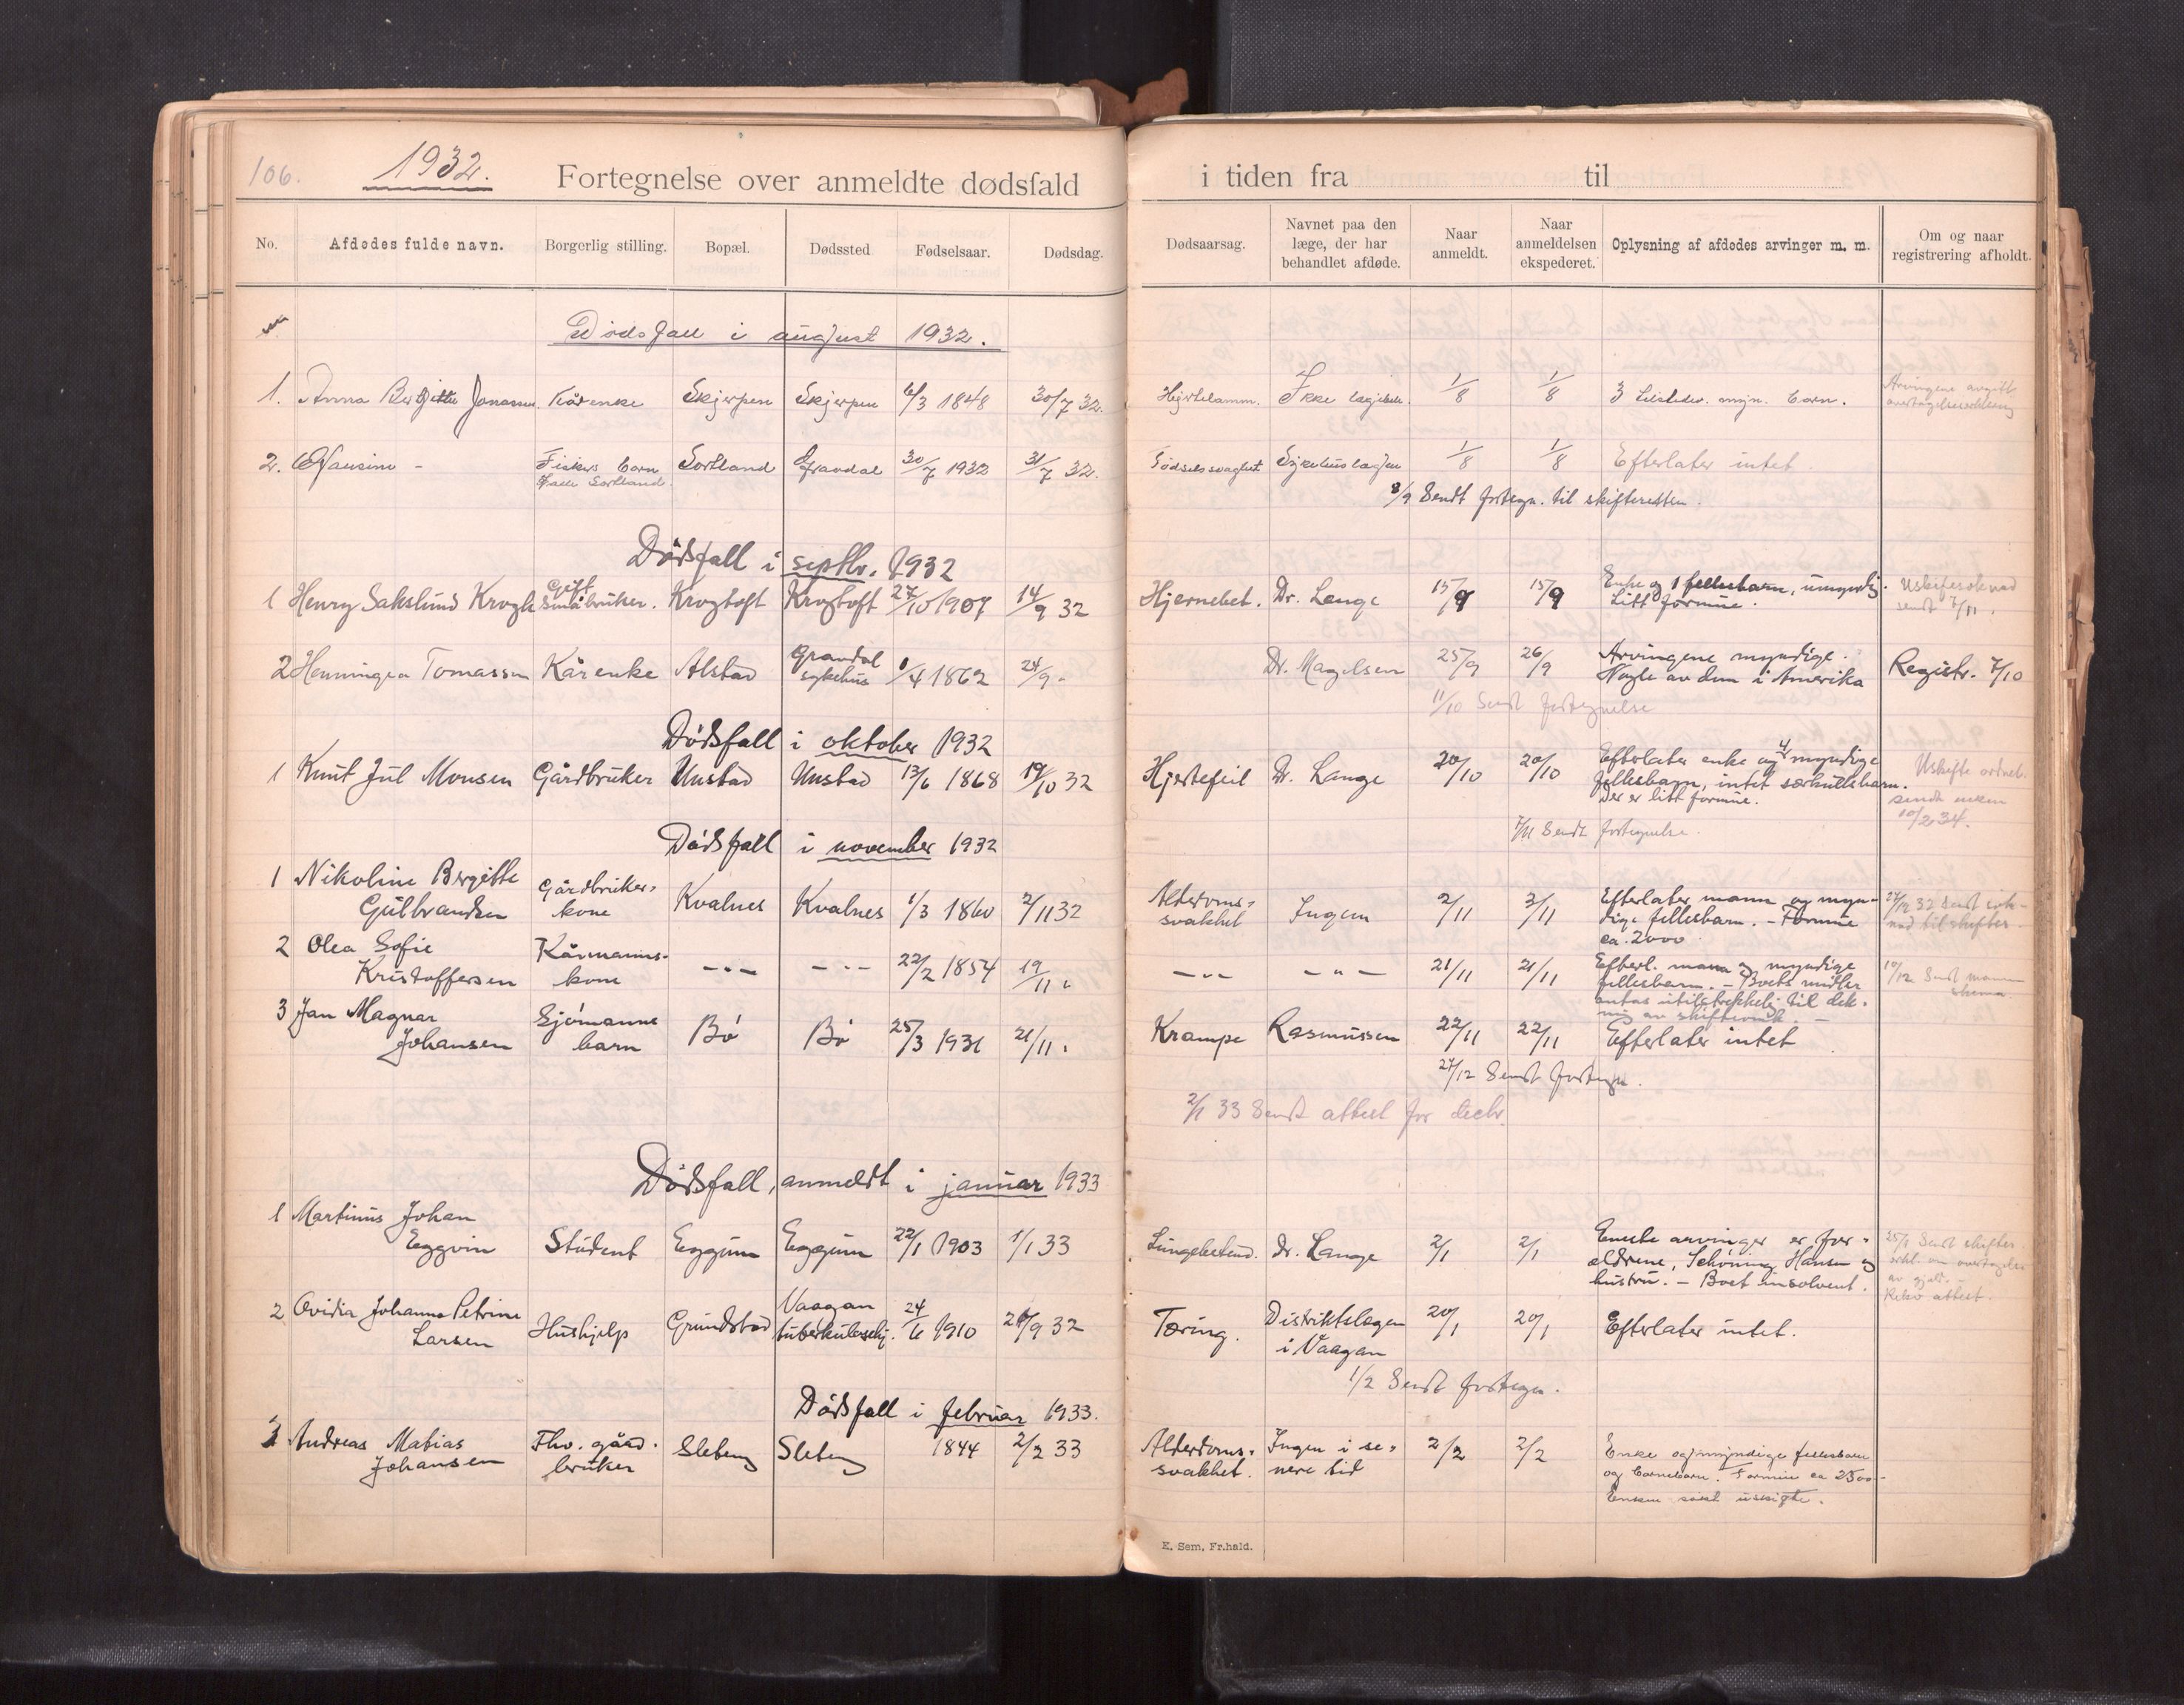 106.
1932.
Fortegnelse over anmeldte dødsfald
i tiden fra til
No.
Afdødes fulde navn.
Borgerlig stilling.
Bopæl.
Dødssted
Fødselsaar.
Dødsdag.
Dødsaarsag.
Navnet paa den
læge, der har
behandlet afdøde.
Naar
anmeldt.
Naar
anmeldelsen
ekspederet.
Oplysning af afdødes arvinger m. m.
Om og naar
registrering afholdt.
Dødsfall i august 1932.
1. Anna Bergitte Kårenke Skjerpen Skjerpen /3 1848 30/7 32. Ikke 1/8 1/8 3 barn.
Arvingene avgitt
2. Fiskers barn Sortland Gravdal 30/7 1932 31/7 32. Fødselssvaghet Sykehuslægen 1/8 1/8 Efterlater intet
Sortland
8/9 Sendt fortegn. til skifteretten.
Dødsfall i septbr. 1932
Gift
1 Henry Sakslund Krogh Småbruker. Krogtoft Krogtoft 27/10 1907 14/9 32 Hjernebet. Dr. Lange 15/9 15/9 Enke og 1 fellesbarn, umyndig.
Litt formue.
sendt 7/11.
2 Henningea Tomassen Kårenke Alstad Gravdal
sykehus 1/4 1862 24/9 - Dr. Magelsen 25/9 26/9 Arvingene myndige.
Nogle av dem i Amerika Registr. 7/10
11/10 Sendt fortegnelse
Dødsfall i oktober 1932
1 Knut Jul Monsen Gårdbruker Unstad Unstad 13/6 1868 19/10 32 Hjertefeil Dr. Lange 20/10 20/10 Efterlater enke og 4 myndige
fellesbarn, intet særkullsbarn.
Der er litt formue.
Uskifte ordnet.
sendt enken
10/2 34.
7/11 Sendt fortegnelse.
Dødsfall i november 1932
1 Nikoline Bergitte
Gulbrandsen Gårdbruker-
kone Kvalnes Kvalnes 1/3 1860 2/11 32 Alderdoms-
svakhet Ingen 2/11 3/11 Efterlater mann og myn-
dige fellesbarn. - Formue
ca. 2000
2 Olea Sofie
Kristoffersen Kårmanns-
kone -"- -"- 22/2 1854 19/11 " -"- -"- 21/11 21/11 Efterl. mann og myndige
fellesbarn. - Boets midler
antas utilstrekkelig til dek-
ning av
10/12 Sendt mann
skema.
3 Jan Magnar
Johansen Sjømanns
barn Bø Bø 25/3 1931 21/11 " Krampe Rasmussen 22/11 22/11 Efterlater intet
27/12 Sendt fortegn.
2/1 33 Sendt attest for decbr.
Dødsfall, anmeldt i januar 1933
1 Martinus Johan
Eggvin Student Eggum Eggum 22/1 1903 1/1 33 Lungebetend. Dr. Lange 2/1 2/1 Eneste arvinger er for-
eldrene, Schöning Hansen og
hustru. - Boet insolvent.
2 Ovidia Johanna Petrine
Larsen Hushjelp Grundstad Vaagan
tuberkulosehj. 24/6 1910 9 32 Tæring. Distriktslegen
i Vaagan 20/1 20/1 Efterlater intet.
1/2 Sendt fortegn.
Dødsfall i februar 1933.
Andreas Matias
Johansen Fhv. gård-
bruker Sleteng Sleteng 1844 2/2 33 Alderdoms-
svakhet. Ingen i se-
nere tid 2/2 2/2 Enke og myndige fellesbarn
og barnebarn. Formue ca 2500-
Enken uskifte.
E. Sem, Fr.hald.